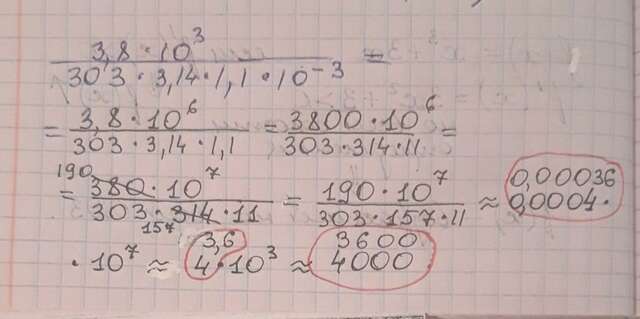 3,8 · 10³ / 303 · 3,14 · 1,1 · 10⁻³ =
= 3,8 · 10⁶ / 303 · 3,14 · 1,1 = 3800 · 10⁶ / 303 · 314 · 11 =
190
= 380 · 10⁷ / 303 · 314 · 11 = 190 · 10⁷ / 303 · 157 · 11 ≈ 0,00036
0,0004 ·
157
3,6 3600
· 10⁷ ≈ 4 · 10³ ≈ 4000